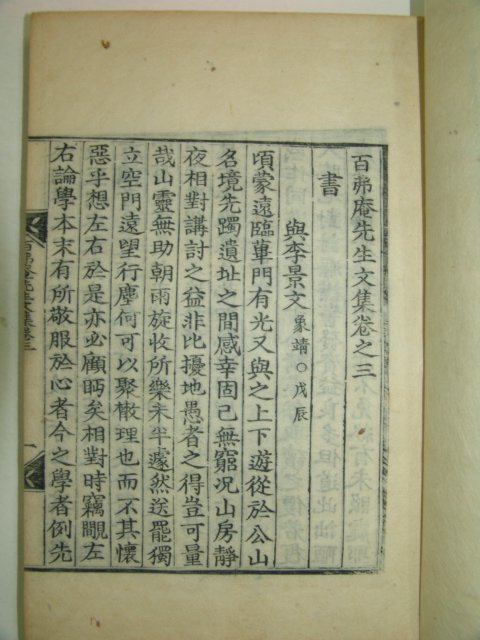 百弗庵先生文集卷之三
書
與李景文象靖○戊辰
頃蒙遠臨蓽門有光又與之上下遊從於公山
名境先躅遺址之間感幸固已無窮况山房靜
夜相對講討之益非比擾地愚者之得豈可量
哉山靈無助朝雨旋收所樂未半遽然送罷獨
立空門遠望行塵何可以聚散理也而不其懷
惡乎想左右於是亦必顧眄矣相對時竊覵左
右論學本末有所敬服於心者今之學者例先
百弗庵先生文集卷三
一